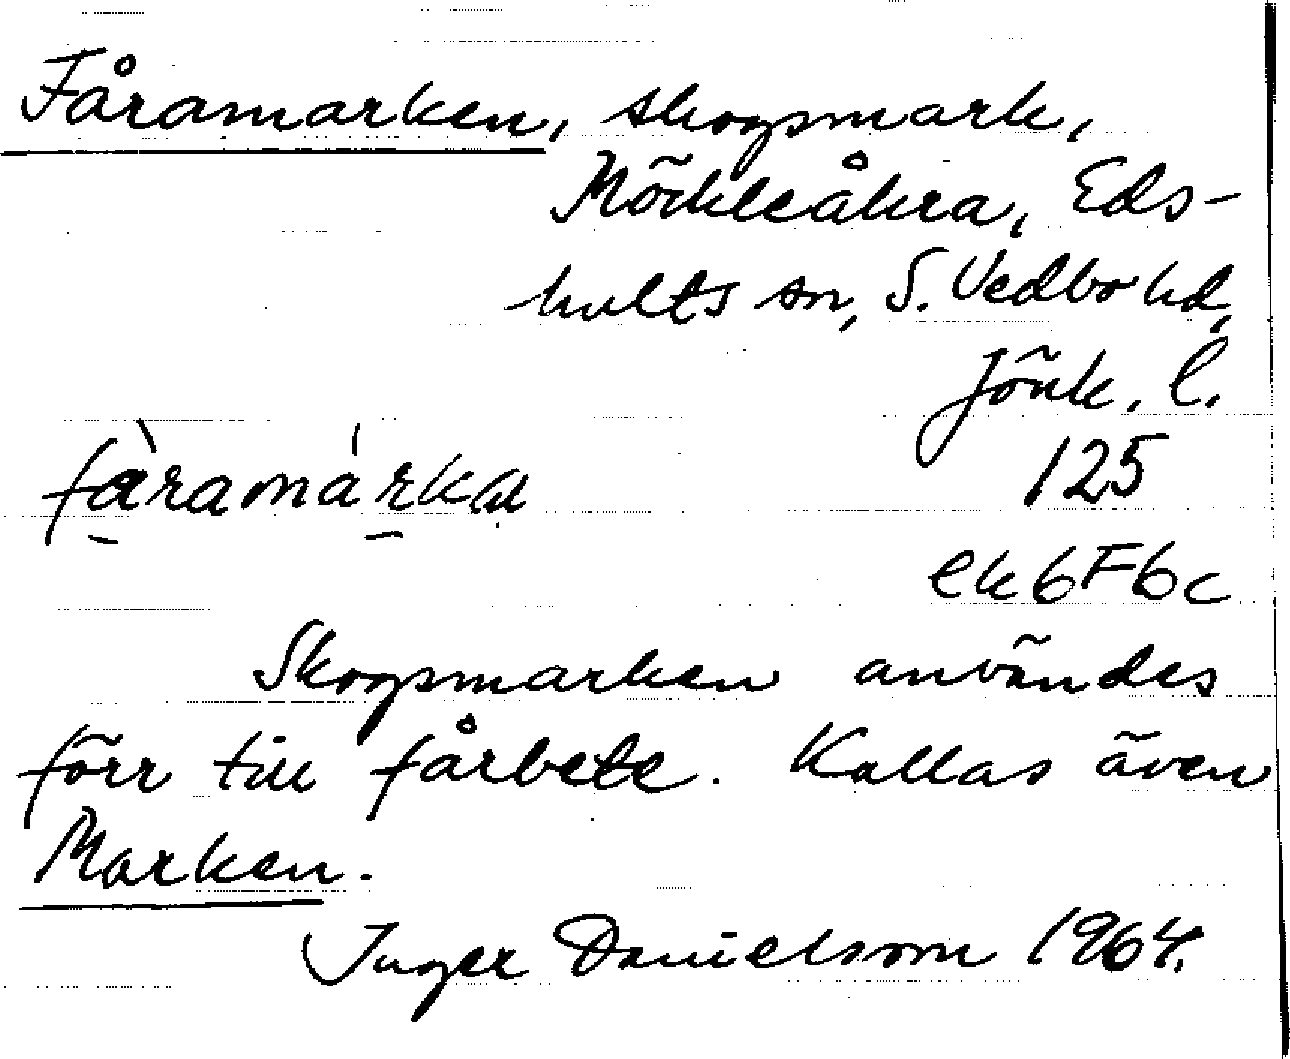 Fåramarken, skogsmark,
Möckleåkra, Eds-
hults sn, S. Vedbo hd,
Jönk. l.
fàramárka
125
ek6F6c
Skogsmarken användes
förr till fårbete. Kallas även
Marken.
Inger Danielsson 1964.